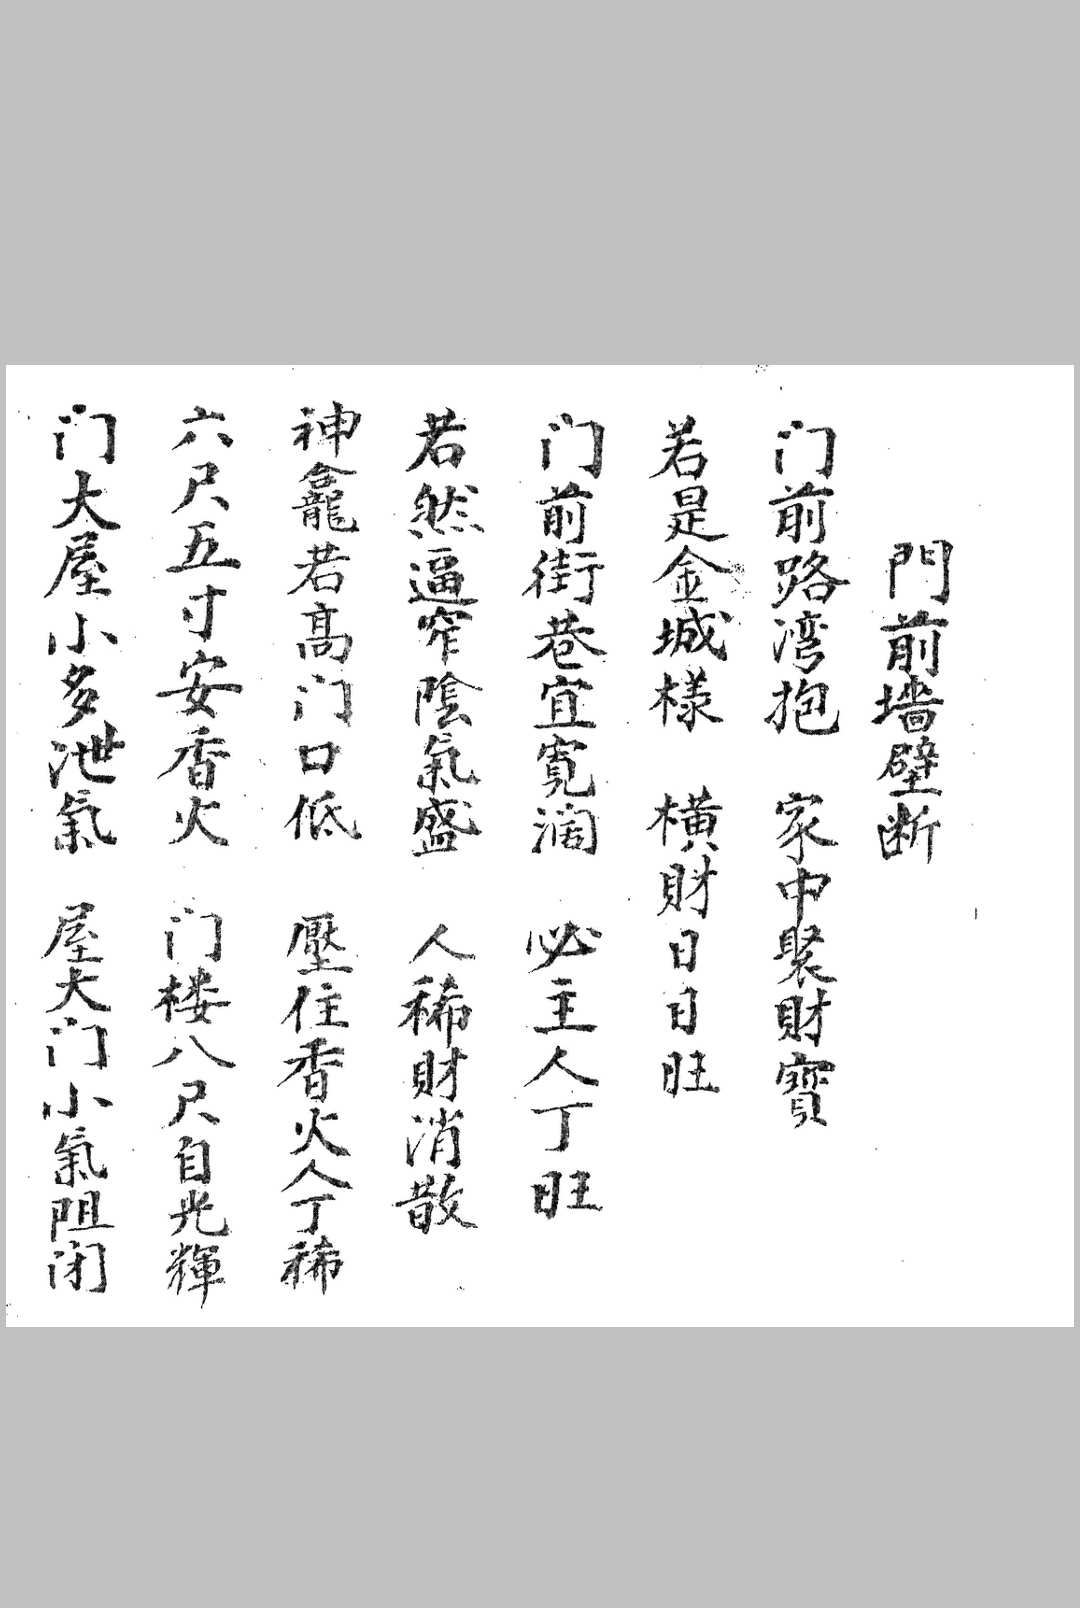 門前墻壁断
门前路湾抱　家中聚財寳
若是金城様　横財日日旺
门前街巷宜寛濶　必主人丁旺
若然逼窄陰氣盛　人稀財消散
神龕若髙门口低　壓住香火人丁稀
六尺五寸安香火　门楼八尺自光輝
门大屋小多泄氣　屋大门小氣阻闭